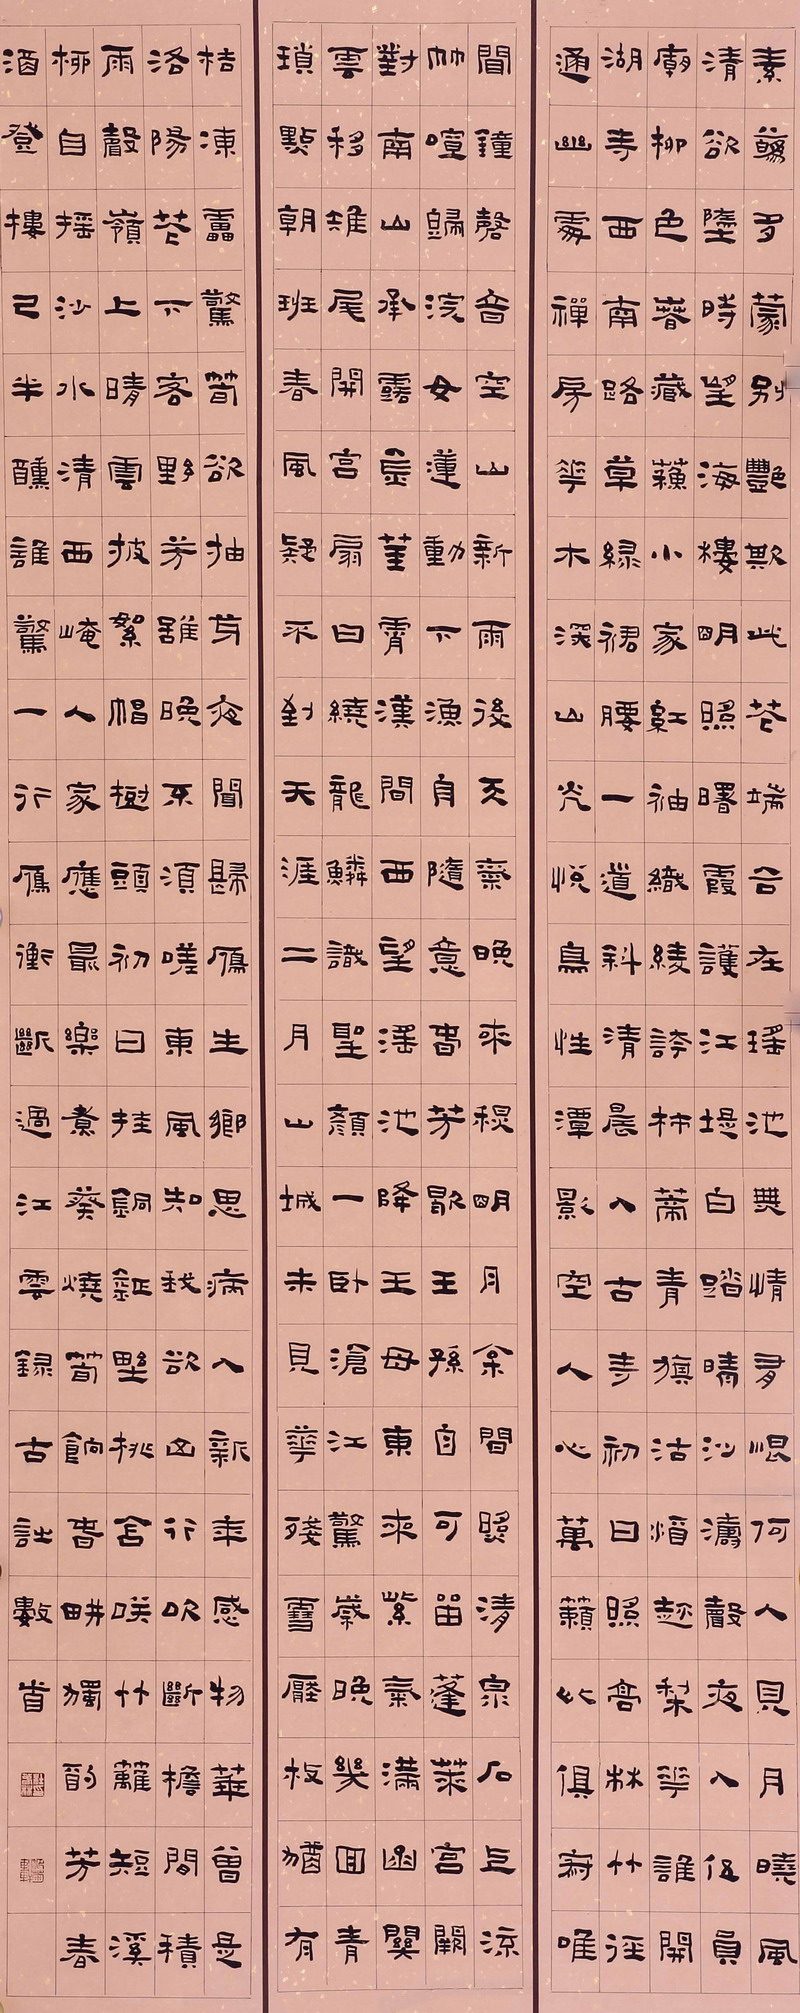 素蘤多蒙別豔欺此花端合在瑤池無情有恨何人見月曉風
清欲墮時望海樓明照曙霞護江堤白踏晴沙濤聲夜入伍員
廟柳色春藏蘇小家紅袖織綾誇柿蔕青旗沽酒趁梨花誰開
湖寺西南路草綠裙腰一道斜清晨入古寺初日照高林竹徑
通幽處禪房花木深山光悅鳥性潭影空人心萬籟此俱寂唯
聞鐘磬音空山新雨後天氣晚來秋明月松間照清泉石上流
竹喧歸浣女蓮動下漁舟隨意春芳歇王孫自可留蓬萊宮闕
對南山承露金莖霄漢間西望瑤池降王母東來紫氣滿函關
雲移雉尾開宮扇日繞龍鱗識聖顏一臥滄江驚歲晚幾回青
瑣點朝班春風疑不到天涯二月山城未見花殘雪壓枝猶有
桔凍雷驚筍欲抽芽夜聞歸雁生鄉思病入新年感物華曾是
洛陽花下客野芳雖晚不須嗟東風知我欲山行吹斷檐間積
雨聲嶺上晴雲披絮帽樹頭初日挂銅鉦野桃含笑竹籬短溪
柳自搖沙水清西崦人家應最樂煮葵燒筍餉春耕獨酌芳春
酒登樓已半醺誰驚一行雁衝斷過江雲錄古詩數首